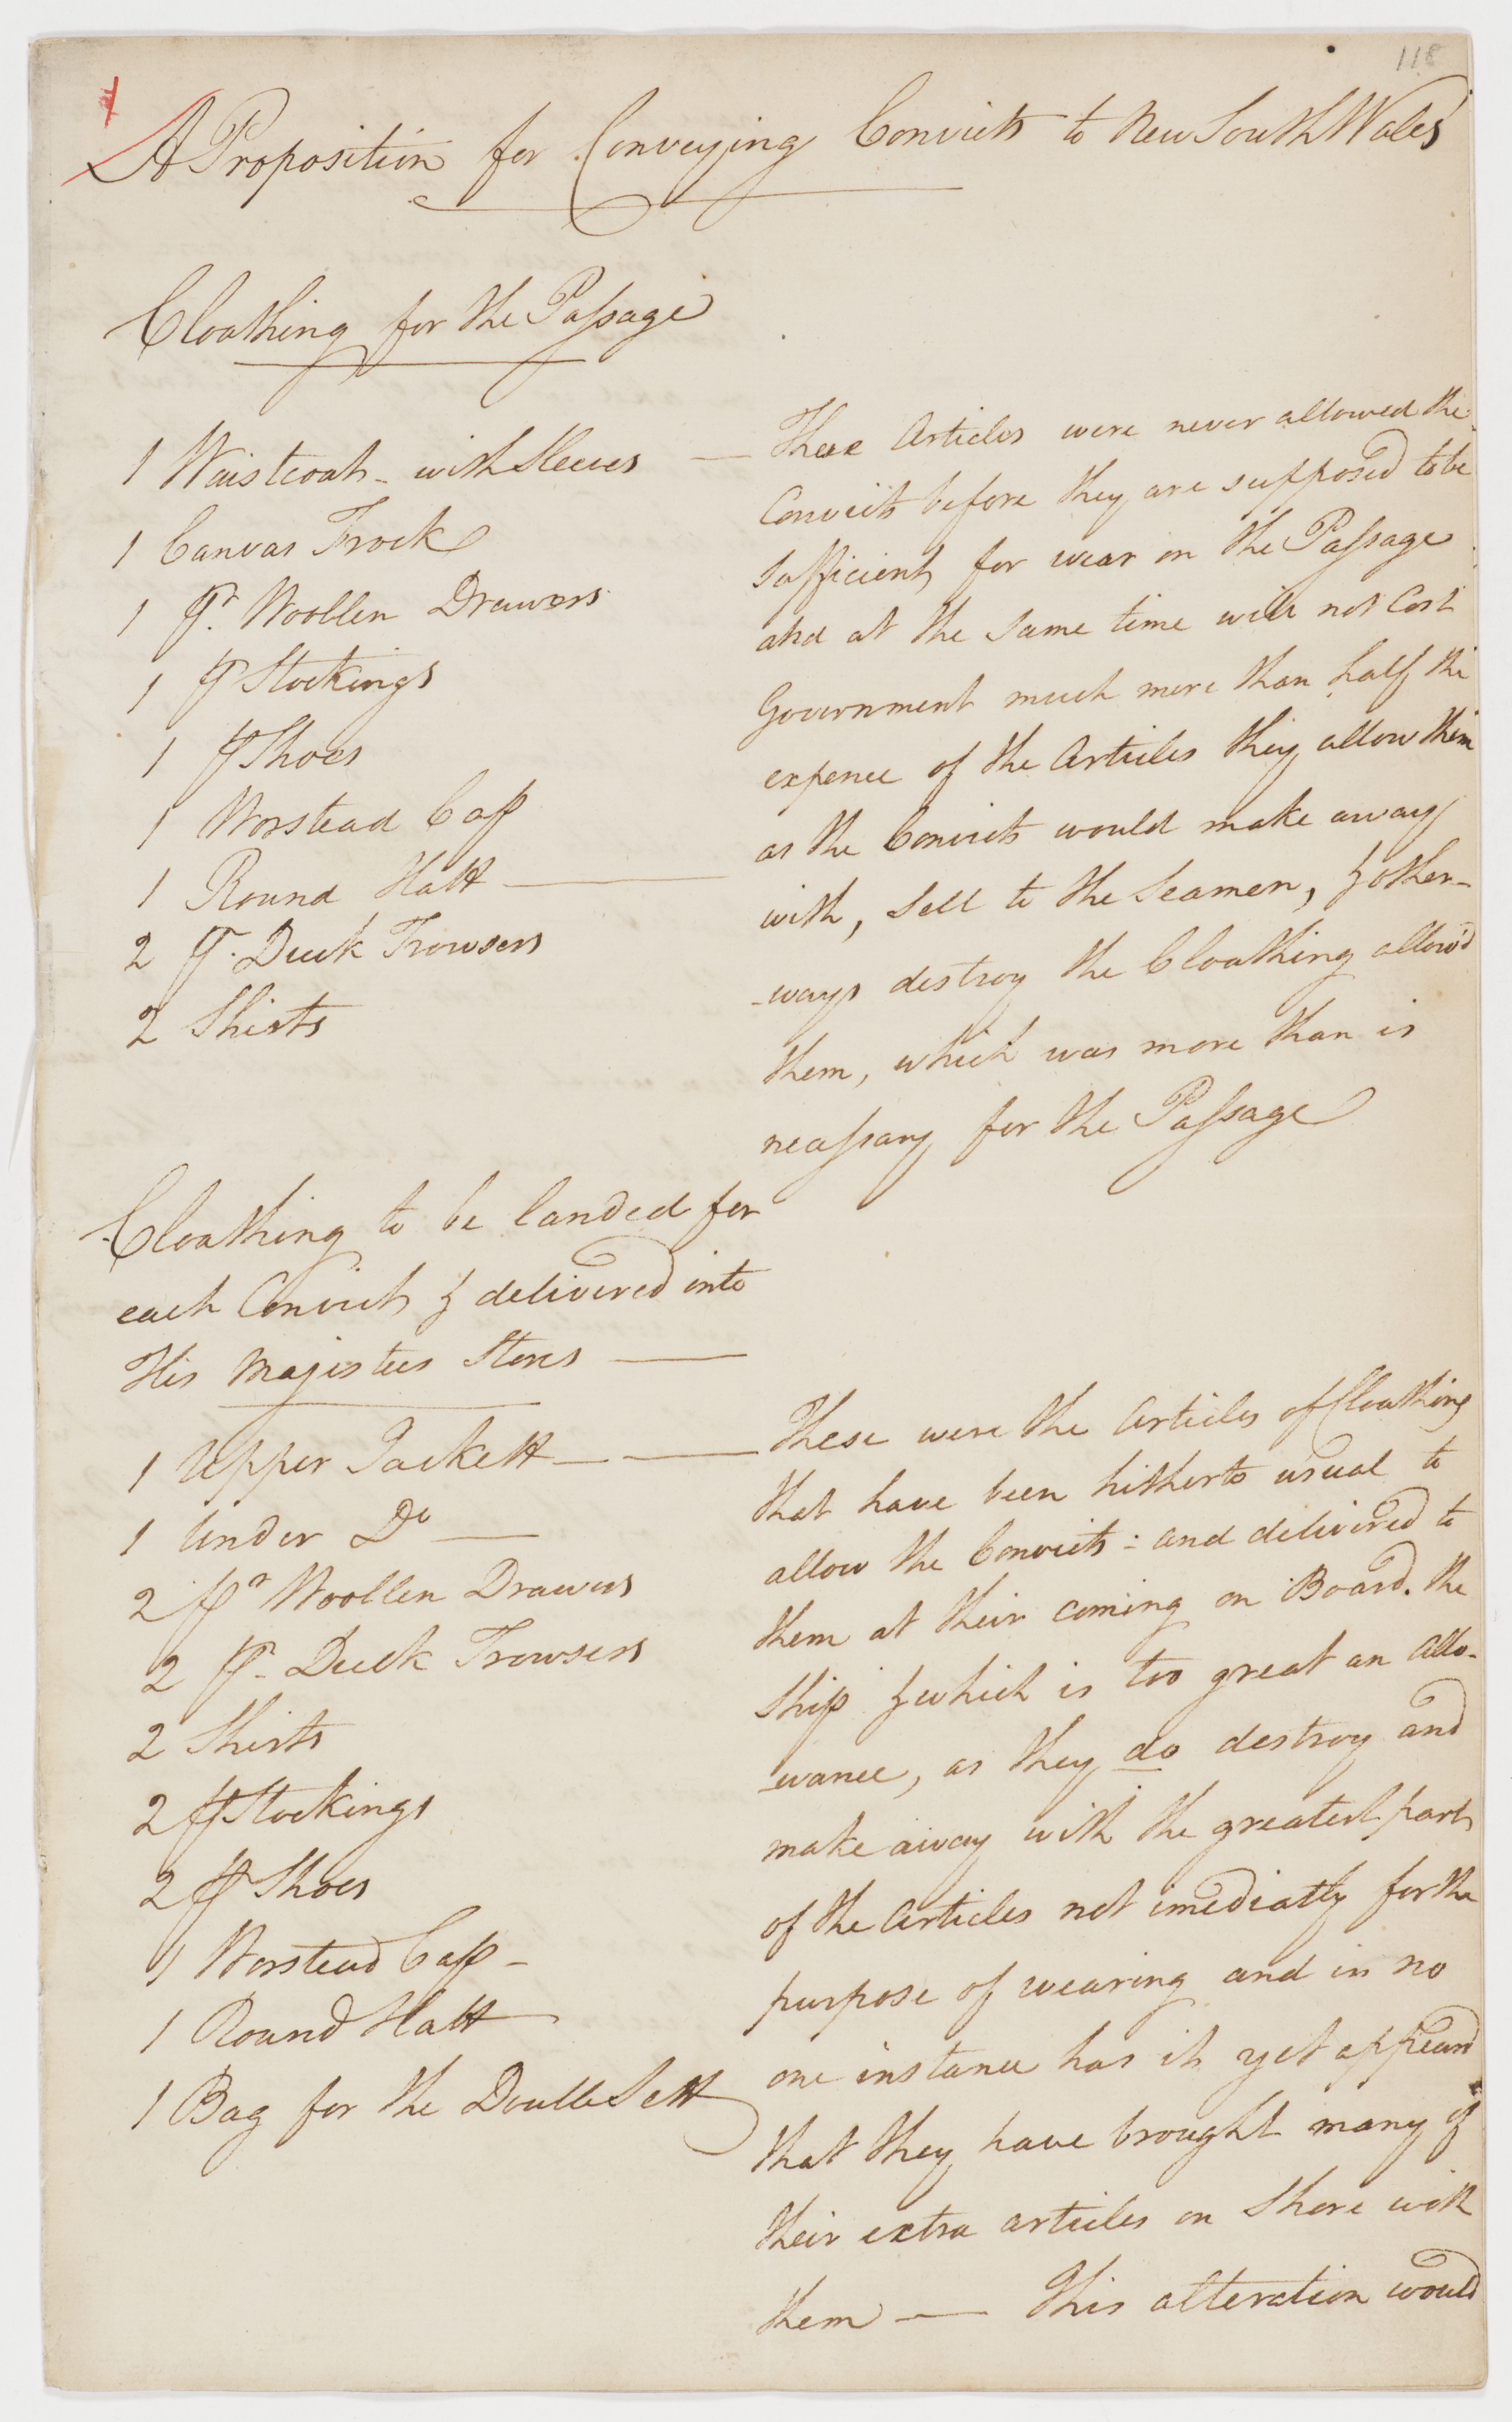 118
A Proposition for Conveying Convicts to New South Wales
Cloathing for the Passage
1 Waistcoat - with Sleeves —
1 Canvas Frock
1 pr. Woollen Drawers
1 pr Stockings
1 pr Shoes
1 Worstead Cap
1 Round Hatt —
2 pr. Duck Trowsers
2 Shirts
These Articles were never allowed the
Convicts before they are supposed to be
sufficient for wear on the Passage
and at the same time will not Cost
Government much more than half the
expence of the Articles they allow them
as the Convicts would make away
with, Sell to the Seamen, & other-
-ways destroy the Cloathing allow'd
them, which was more than is
necessary for the Passage
Cloathing to be landed for
each Convict & delivered into
His Majestees Stores —
1 Upper Jackett — —
1 Under Do —
2 pr Woollen Drawers
2 pr. Duck Trowsers
2 Shirts
2 pr Stockings
2 pr Shoes
1 Worstead Cap -
1 Round Hatt
1 Bag for the Double Sett
These were the Articles of Cloathing
that have been hitherto usual to
allow the Convicts : and delivered to
them at their coming on Board. the
Ship & which is too great an allo-
-wance, as they do destroy and
make away with the greatest part
of the Articles not imediatly for the
purpose of wearing and in no
one instance has it yet appeard
that they have brought many of
their extra articles on Shore with
them — This alteration would